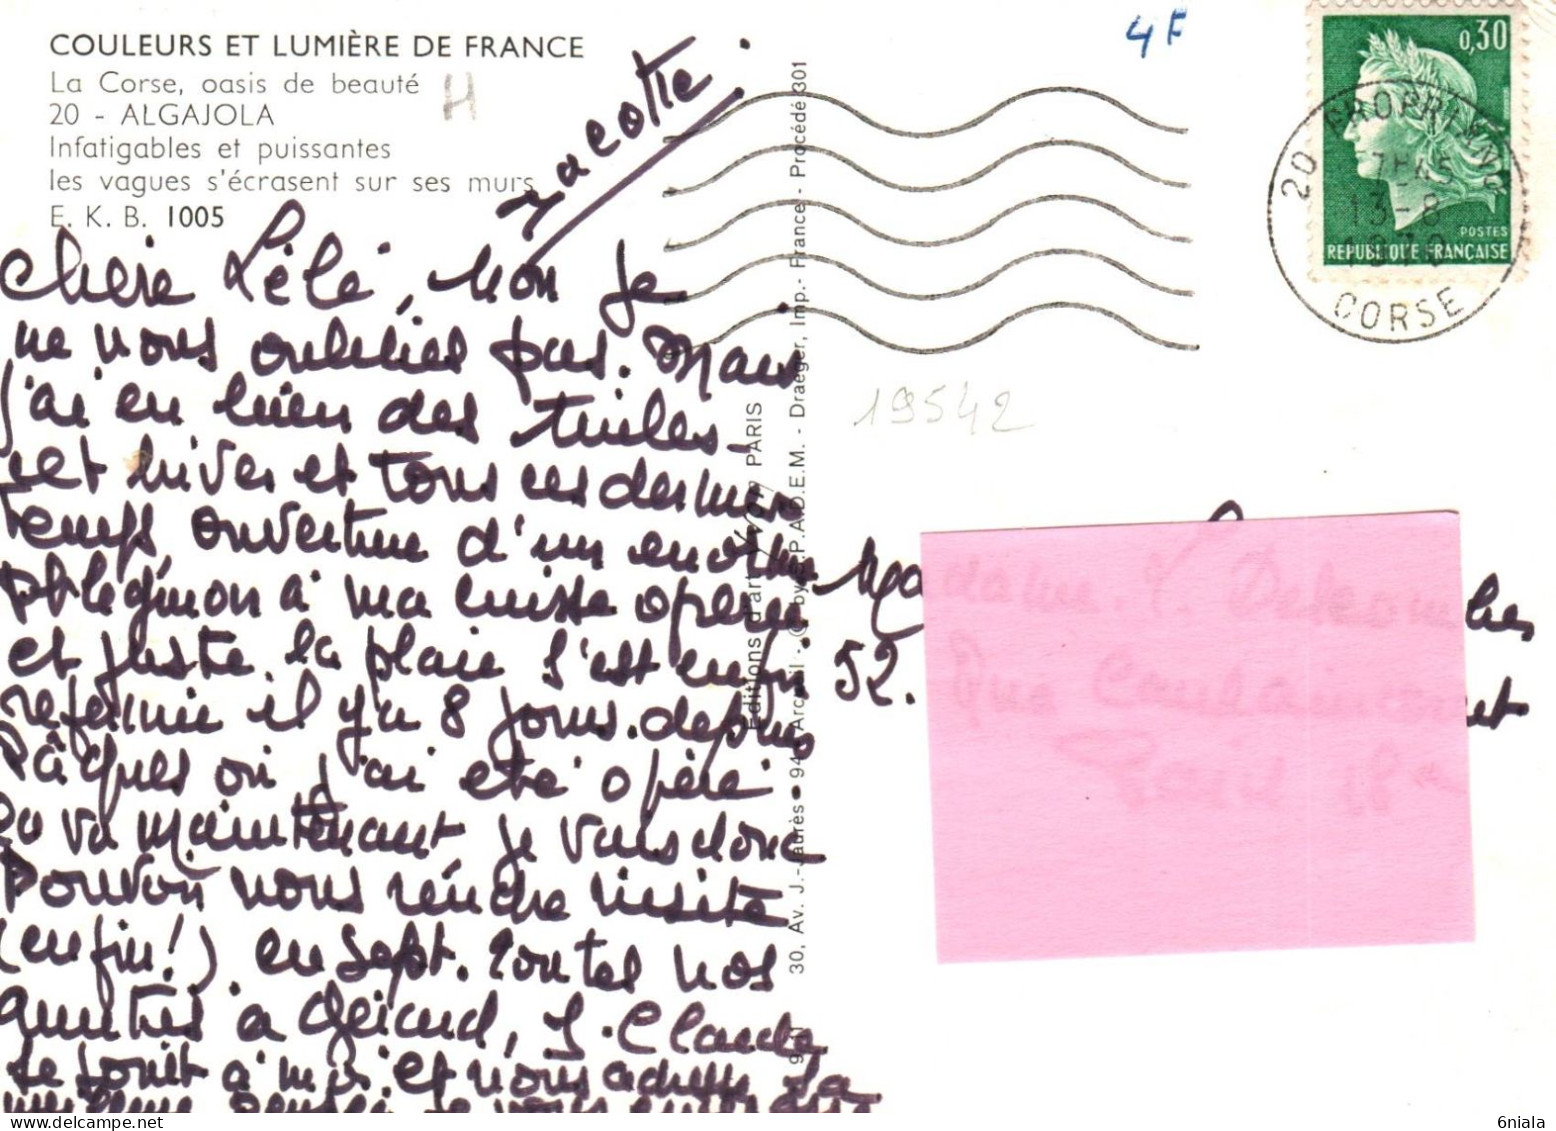 COULEURS ET LUMIÈRE DE FRANCE
La Corse, oasis de beauté
20 - ALGAJOLA
Infatigables et puissantes
les vagues s'écrasent sur ses murs
E. K. B. 1005
H
Jacotte.
Chère Lélé, Non je
ne vous oublies pas. Mais
j'ai eu bien des tuiles
cet hiver et tous ces derniers
temps, ouverture d'un enorme
phlegmon à ma cuisse operée
et juste la plaie s'est enfin
refermée il y a 8 jours. depuis
Pâques où j'ai été opéré
ça va maintenant, je vais donc
Pouvoir vous rendre visite
(enfin!) en Sept. Toutes nos
amitiés à Gérard, J. Claude
se joint à moi et vous adresse sa
meilleure
Editions d'art YVON PARIS
30, Av. J.-Jaurès • 94 Arcueil - © by S.P.A.D.E.M. - Draeger, Imp. - France - Procédé 301
4F
0,30
POSTES
REPUBLIQUE FRANÇAISE
20 PROPRIANO
13-8
CORSE
19542
Madame. Y. Delcombes
52. Rue Caulaincourt
Paris 18e
6niala